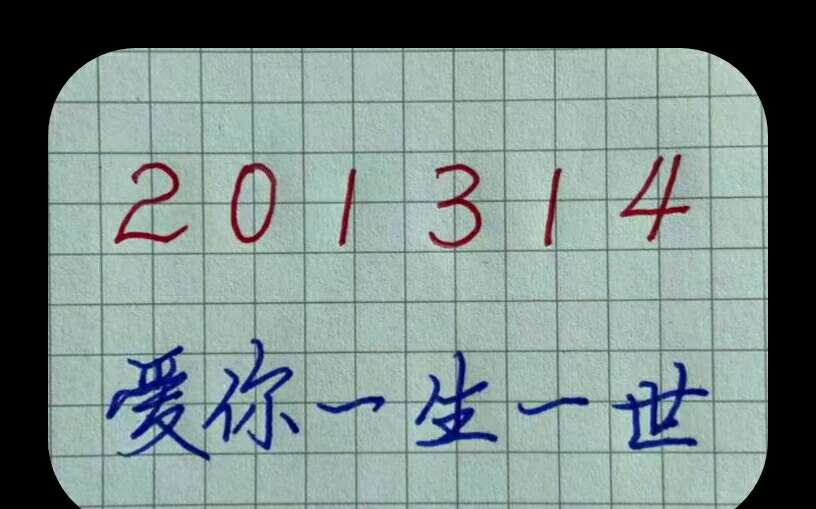 201314
爱你一生一世